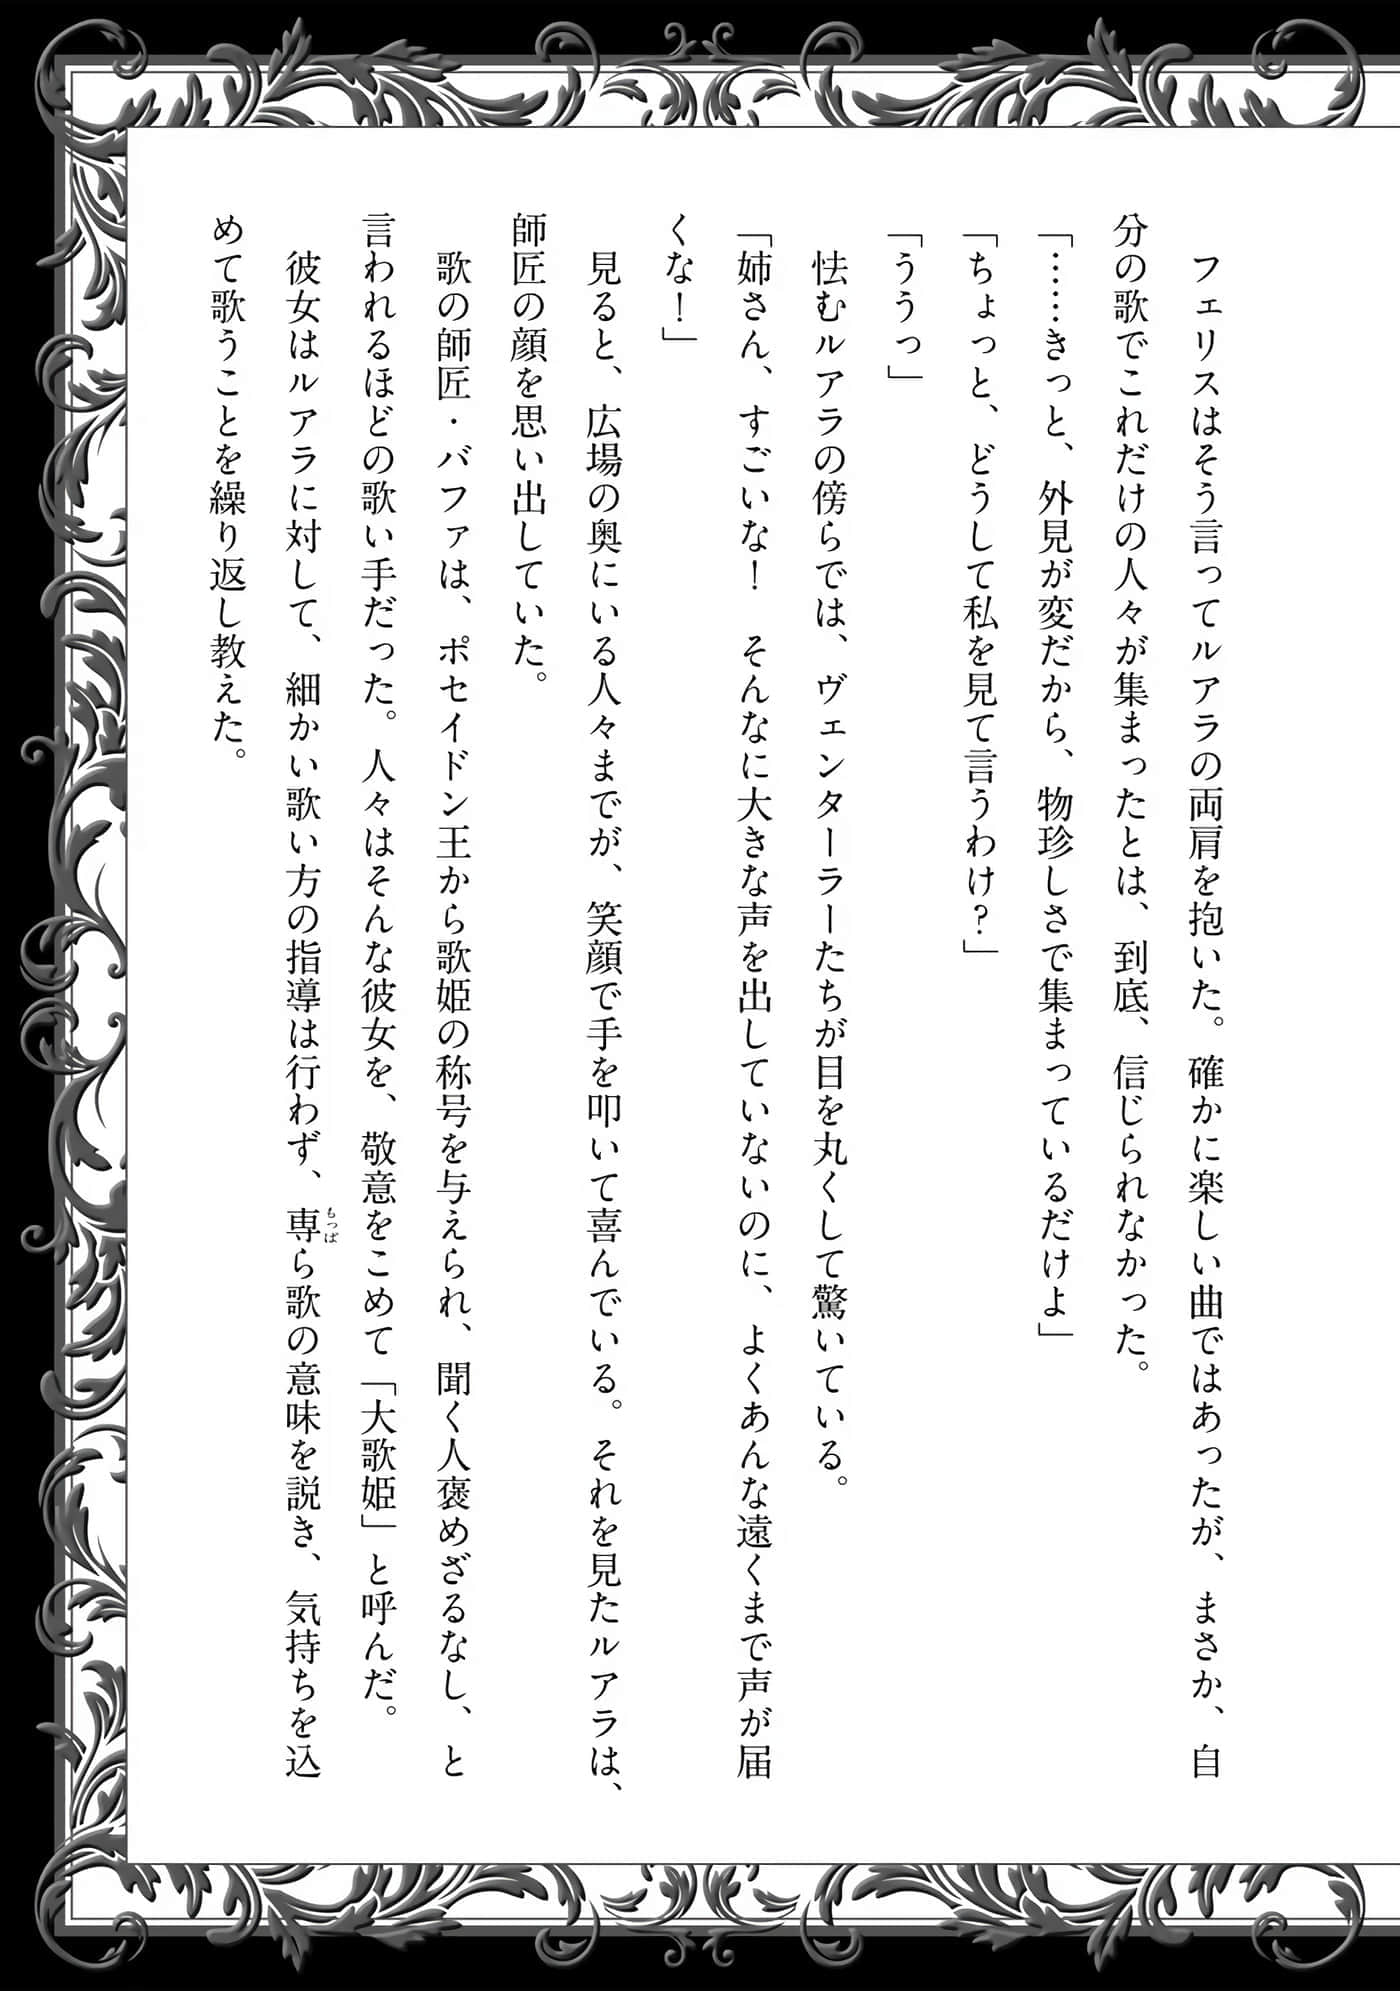 フェリスはそう言ってルアラの両肩を抱いた。確かに楽しい曲ではあったが、まさか、自
分の歌でこれだけの人々が集まったとは、到底、信じられなかった。
「……きっと、外見が変だから、物珍しさで集まっているだけよ」
「ちょっと、どうして私を見て言うわけ？」
「ううっ」
　怯むルアラの傍らでは、ヴェンターラーたちが目を丸くして驚いている。
「姉さん、すごいな！　そんなに大きな声を出していないのに、よくあんな遠くまで声が届
くな！」
　見ると、広場の奥にいる人々までが、笑顔で手を叩いて喜んでいる。それを見たルアラは、
師匠の顔を思い出していた。
　歌の師匠・バファは、ポセイドン王から歌姫の称号を与えられ、聞く人褒めざるなし、と
言われるほどの歌い手だった。人々はそんな彼女を、敬意をこめて「大歌姫」と呼んだ。
　彼女はルアラに対して、細かい歌い方の指導は行わず、専ら歌の意味を説き、気持ちを込
もっぱ
めて歌うことを繰り返し教えた。